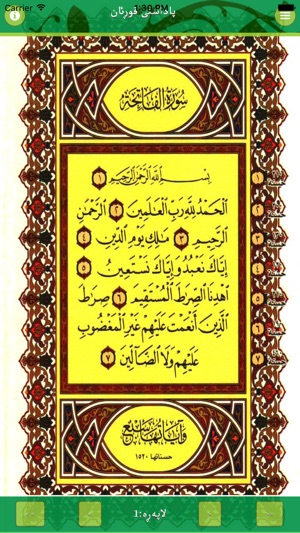 Carrier 1:30 PM
پاداشتی قورئان
سُورَةُ الفَاتِحَةِ
بِسْمِ اللَّهِ الرَّحْمَٰنِ الرَّحِيمِ ١
الْحَمْدُ لِلَّهِ رَبِّ الْعَالَمِينَ ٢ الرَّحْمَٰنِ
الرَّحِيمِ ٣ مَالِكِ يَوْمِ الدِّينِ ٤
إِيَّاكَ نَعْبُدُ وَإِيَّاكَ نَسْتَعِينُ ٥
اهْدِنَا الصِّرَاطَ الْمُسْتَقِيمَ ٦ صِرَاطَ
الَّذِينَ أَنْعَمْتَ عَلَيْهِمْ غَيْرِ الْمَغْضُوبِ
عَلَيْهِمْ وَلَا الضَّالِّينَ ٧
١
٢
٣
٤
٥
٦
٧
وَآيَاتُهَا سَبْعٌ
حسناتها ١٥٢٠
لاپەڕە:1